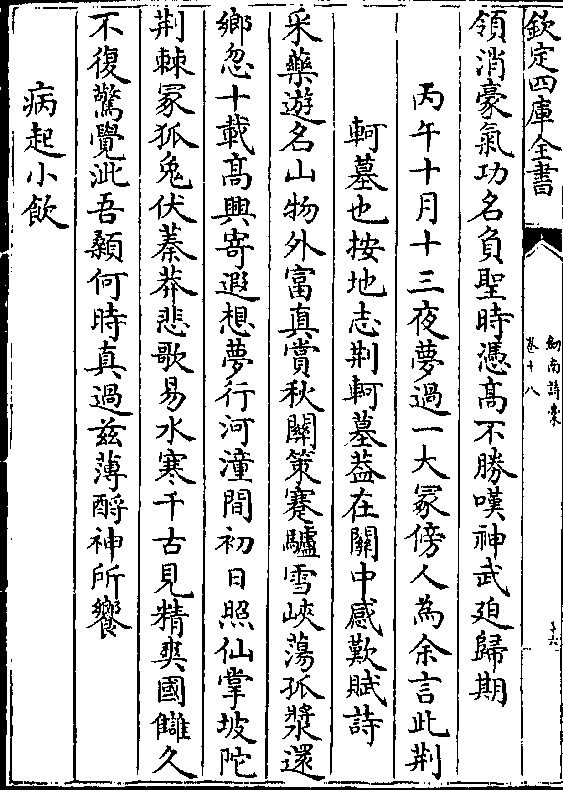 欽定四庫全書
劒南詩稾
卷十八
領消豪氣功名負聖時憑髙不勝嘆神武廹歸期
丙午十月十三夜夢過一大冢傍人為余言此荆
軻墓也按地志荆軻墓葢在關中感歎賦詩
采藥遊名山物外富真賞秋關策蹇驢雪峽蕩孤槳還
鄉忽十載髙興寄遐想夢行河潼間初日照仙掌坡陀
荆棘冢狐兔伏蓁莽悲歌易水寒千古見精爽國讎久
不復驚覺泚吾顙何時真過兹薄酹神所饗
病起小飲